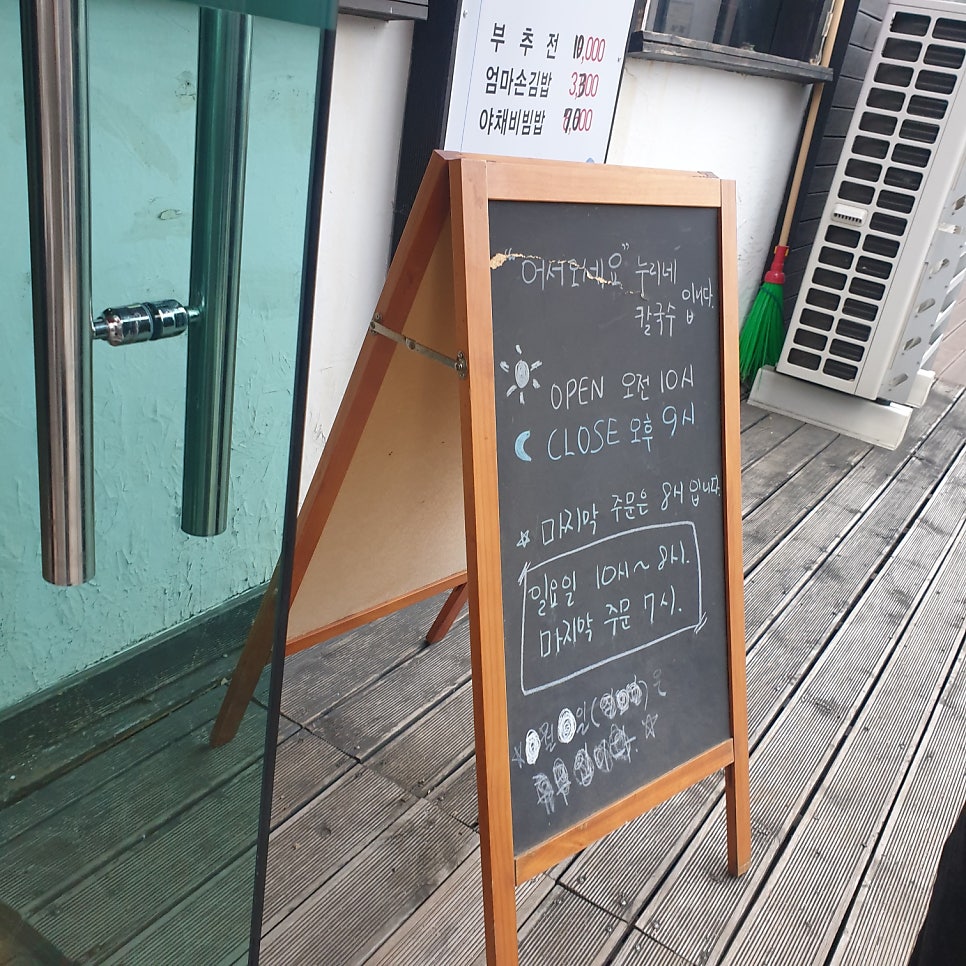 부추전 10,000
엄마손김밥
야채비빔밥
"어서오세요" 누리네
칼국수 입니다.
OPEN 오전 10시
CLOSE 오후 9시
☆ 마지막 주문은 8시 입니다.
일요일 10시~8시.
마지막 주문 7시.
월 일( )은